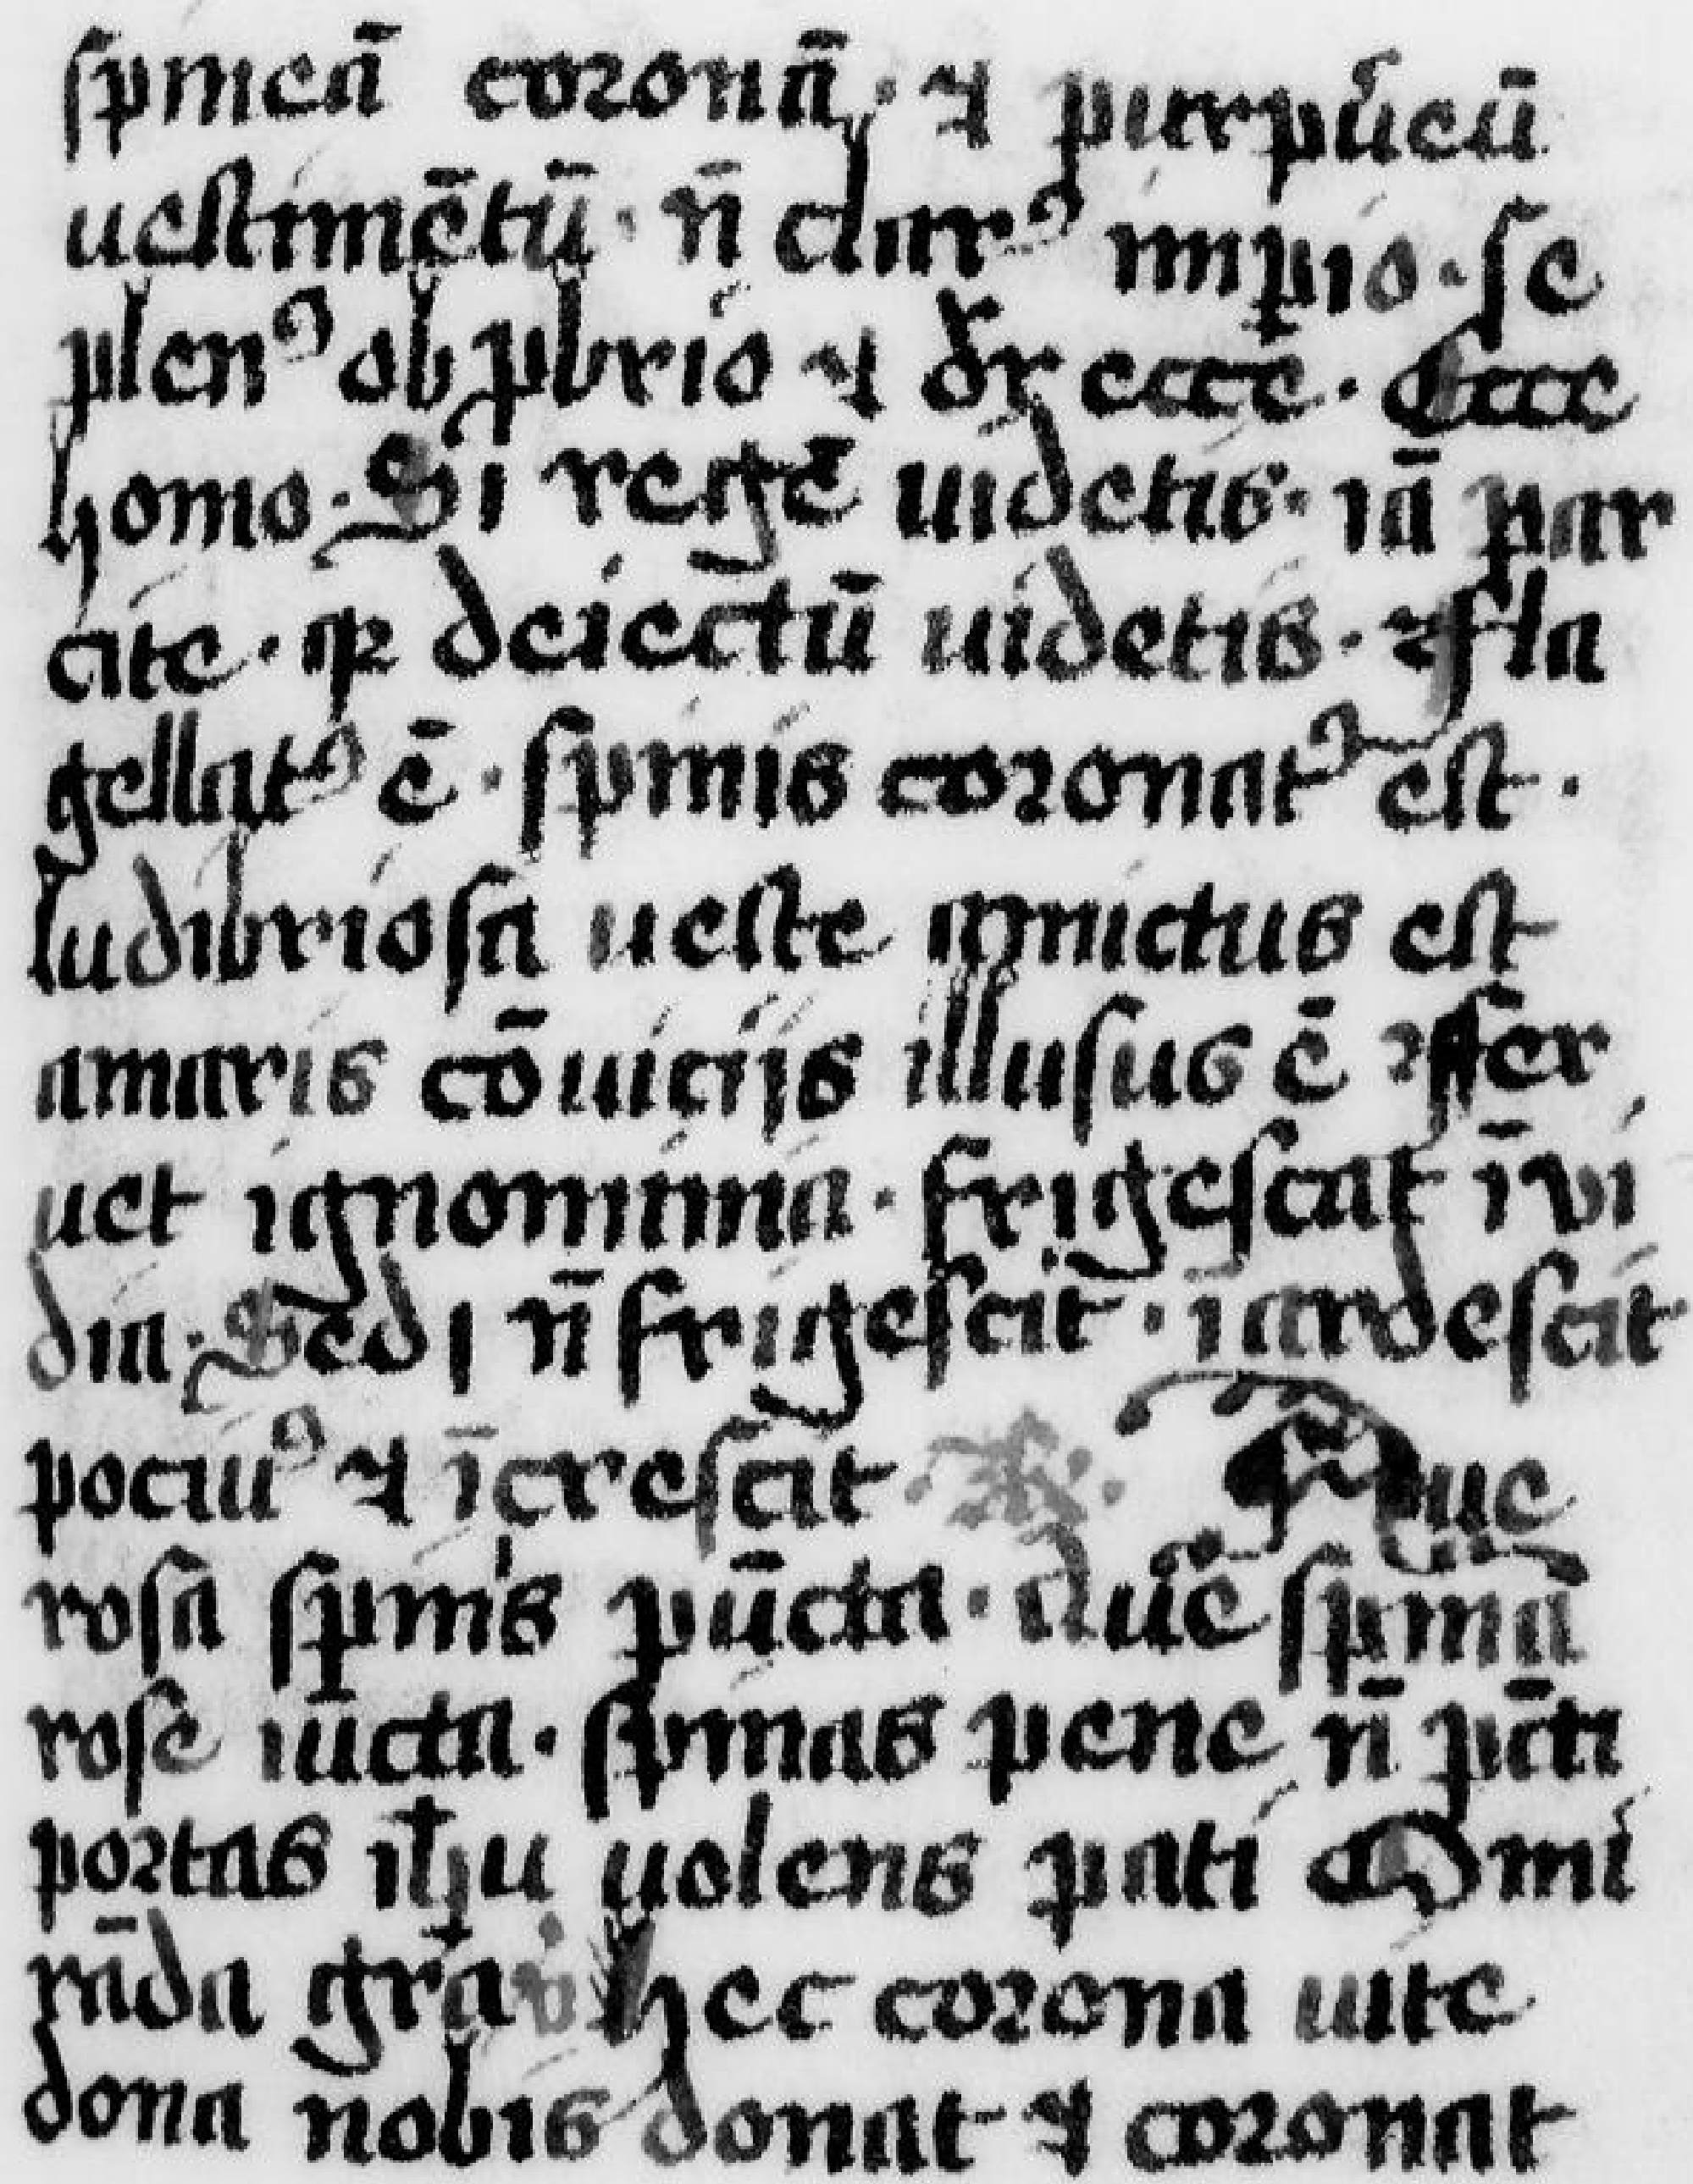 spineā coronā · ⁊ purpuͤeū
uestimētū · n̄ clarꝰ imꝑio · se
plenꝰ obꝓbrio ⁊ dr̄ eccē · Ecce
homo · Si regē uidetis · iā par
cite · qꝛ deiectū uidetis · ⁊ fla
gellatꝰ ē · spinis coronatꝰ est ·
ludibriosa ueste amictus est
amaris cōuicijs illusus ē ⁊ fer
uet ignominia · frigescat īvi
dia · Sed n̄ frigescit · īardescit
pociuꝰ ⁊ īcrescit Aue
rosā spinis pūcta · Aue spinā
rose iūcta · spinas pene n̄ pati
portas ih̄u uolens pati O mi
rāda grā v hec corona uite
dona nobis donat ⁊ coronat